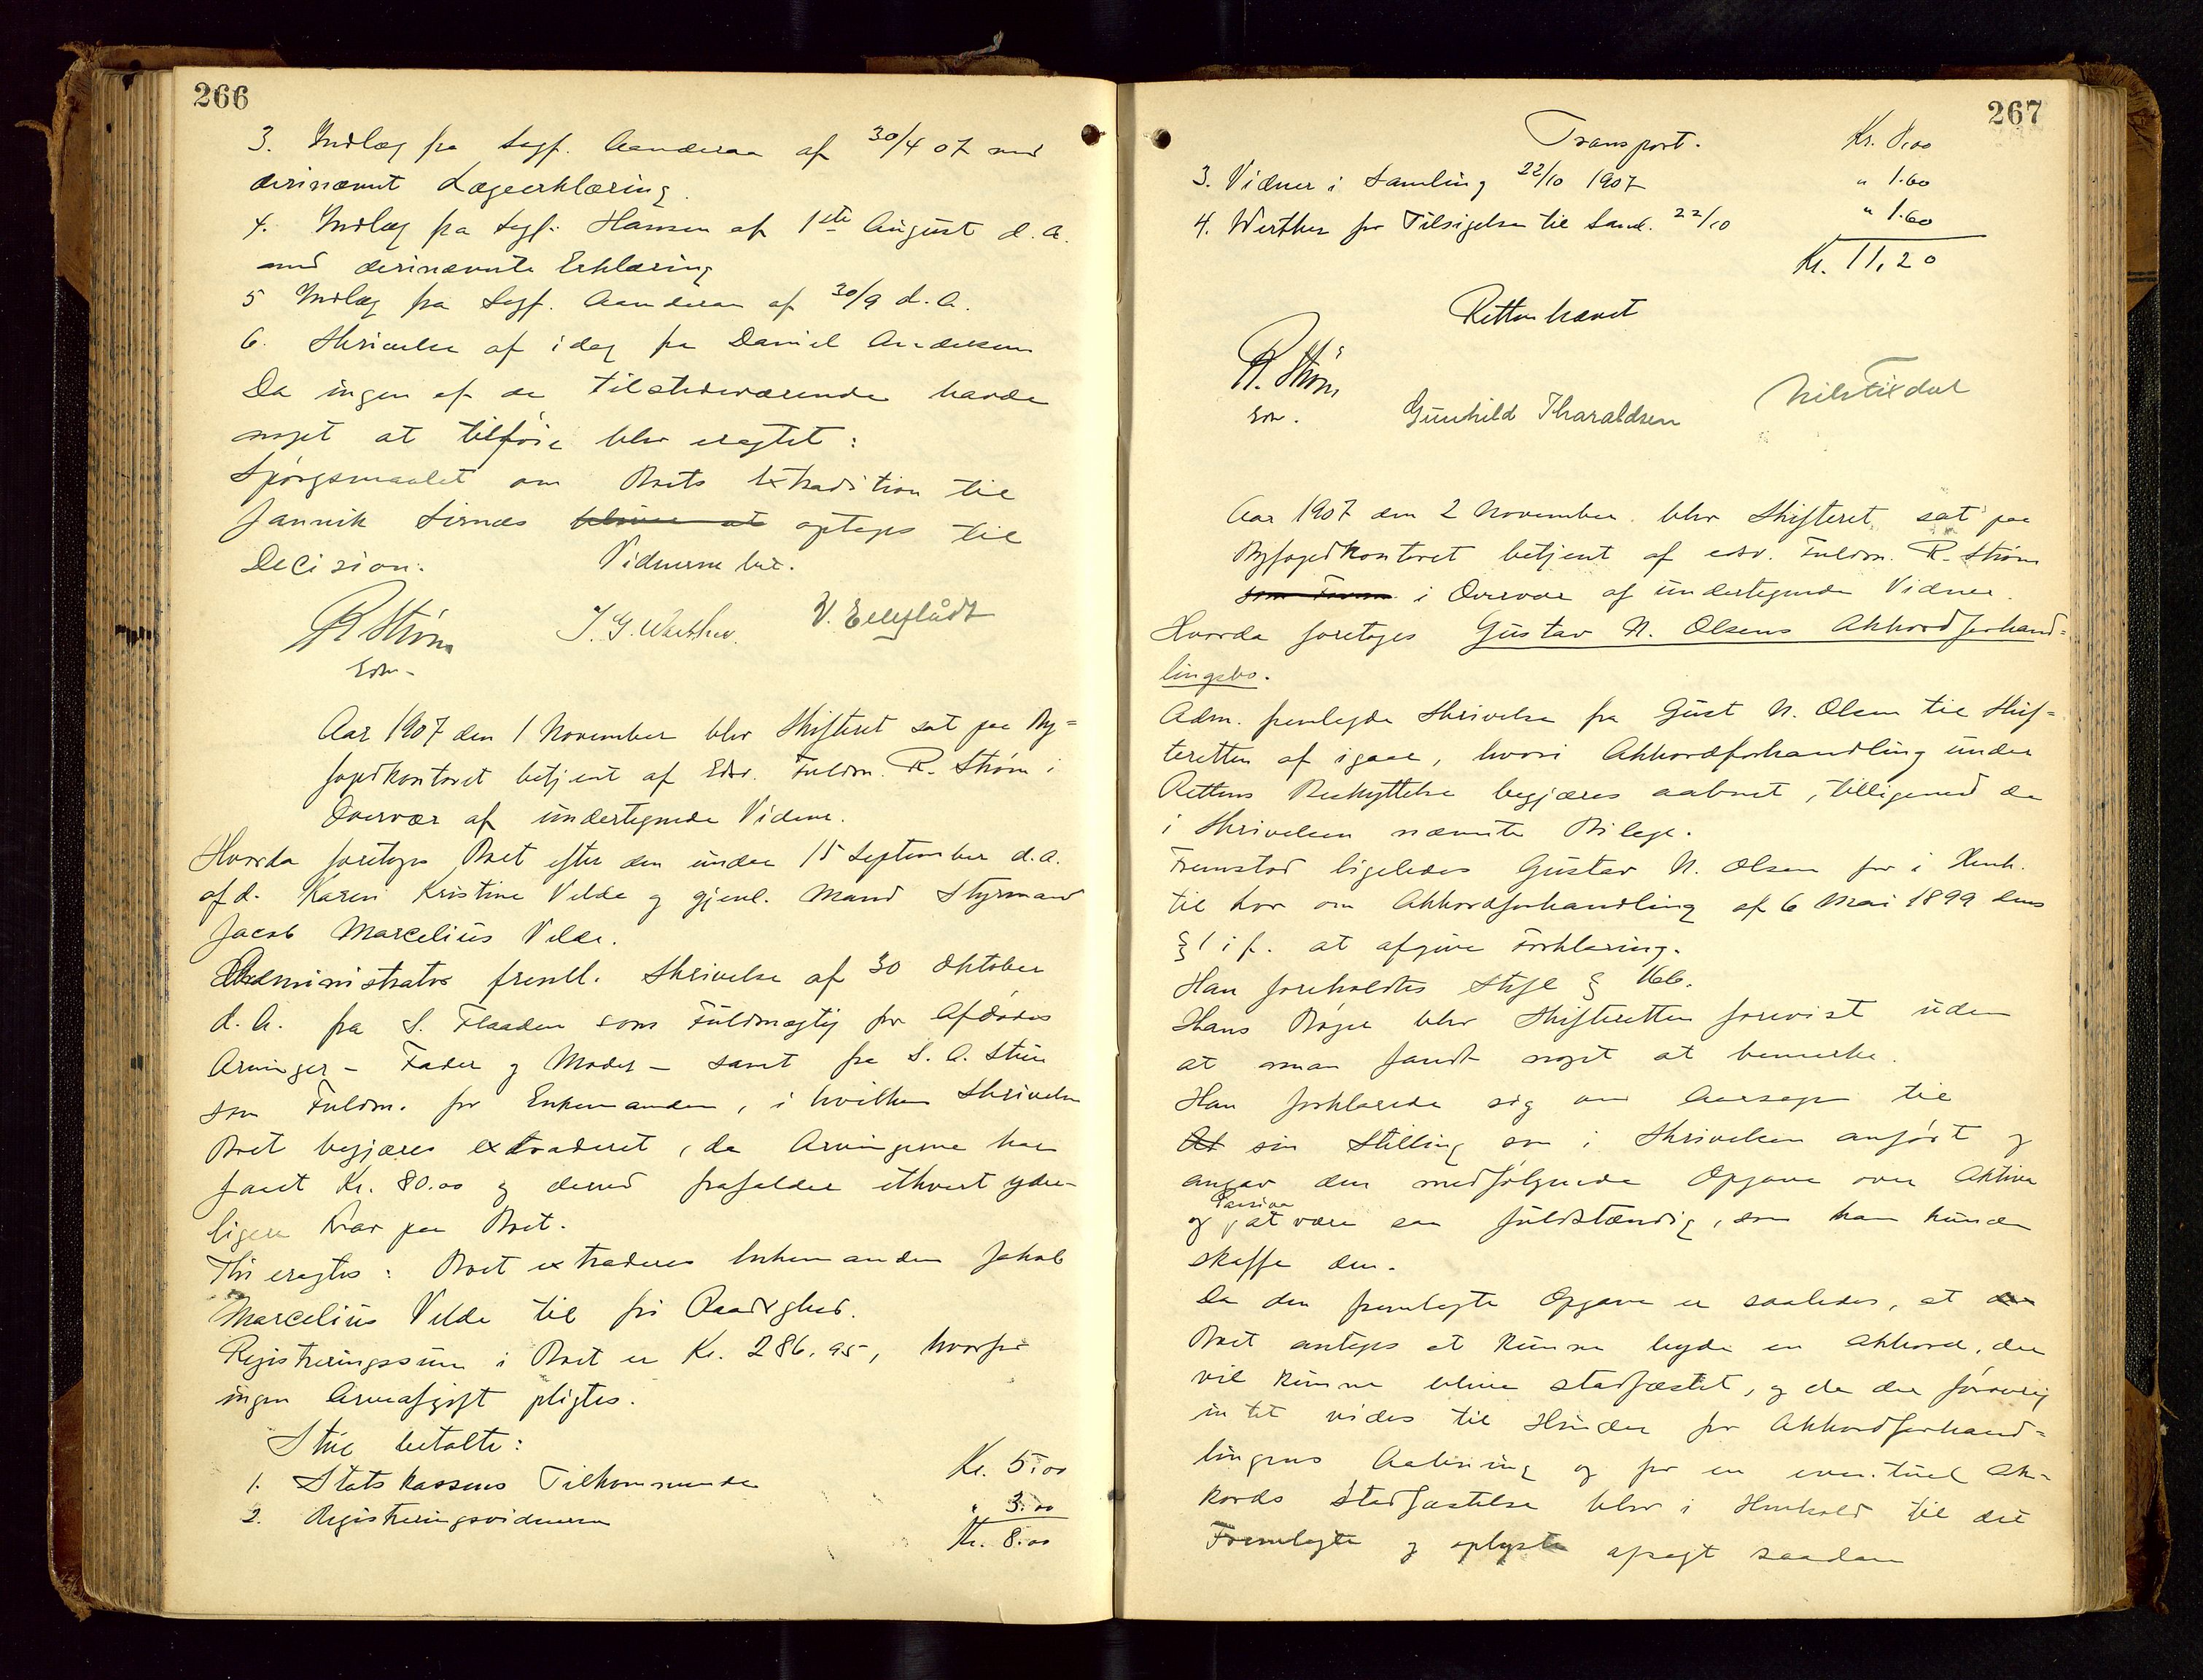 266
3. Indlæg fra Sagf. Aanderaa af 30/4 07 med
derinævnt Lægeerklæring.
4. Indlæg fra Sagf. Hansen af 1ste August d. A.
med derinævnte Erklæring
5 Indlæg fra Sagf. Aanderaa af 30/9 d. A.
6. Skrivelse af idag fra Daniel Andersen
Da ingen af de Tilstedeværende havde
noget at tilføie blev eragtet:
Spørgsmaalet om Boets Extradition til
Jannik Sirnæs optages til
Decision.
Vidnerne bet.
R Strøm
J. G. Werther.
Edsv.
Aar 1907 den 1 November blev Skifteret sat paa By=
fogedkontoret betjent af Edsv. Fuldm. R. Strøm i
Overvær af undertegnede Vidner.
Hvorda foretoges Boet efter den under 15 September d. A.
afd. Karen Kristine Velde og gjenl. Mand Styrmand
Jacob Marcelius Velde.
Administrator freml. Skrivelse af 30 Oktober
d. A. fra S. Flaaden som Fuldmægtig for Afdødes
Arvinger – Fader og Moder – samt fra S. A. Stue
som Fuldm. for Enkemanden, i hvilken Skrivelse
Boet begjæres extraderet, da Arvingerne har
faaet Kr. 80.00 og derved frafalder ethvert yder-
ligere Krav paa Boet.
Thi eragtes: Boet extraderes Enkemanden Jakob
Marcelius Velde til fri Raadighed.
Registreringssum i Boet er Kr. 286.95, hvorfor
ingen Arveafgift pligtes.
Stue betalte:
1. Statskassens Tilkommende Kr. 5.00
2. Registreringsvidnerne " 3.00
Kr. 8.00
267
Transport. Kr. 8,00
3. Vidner i Samling 22/10 1907 " 1.60
4. Werther for Tilsigelse til Saml. 22/10 " 1.60
Kr. 11,20
Retten hævet
R. Strøm
Edsv.
Gunhild Tharaldsen
Aar 1907 den 2 November blev Skifteret sat paa
Byfogedkontoret betjent af edsv. Fuldm. R. Strøm
i Overvær af undertegnede Vidner.
Hvorda foretoges Gustav N. Olsens Akkordforhand=
lingsbo.
Adm. fremlagde Skrivelse fra Gust N. Olsen til Skif=
teretten af igaar, hvori Akkordforhandling under
Rettens Beskyttelse begjæres aabnet, tilligemed de
i Skrivelsen nævnte Bilage.
Fremstod ligeledes Gustav N. Olsen for i Henh.
til Lov om Akkordforhandling af 6 Mai 1899 dens
§ 1 i f. at afgive Forklaring.
Han foreholdtes Strfl § 166.
Hans Bøger blev Skifteretten forevist uden
at man fandt noget at bemerke.
Han forklarede sig om Aarsagen til
sin Stilling som i Skrivelsen anført og
angav den medfølgende Opgave over Aktiva
og Passiva at være saa fuldstændig, som han kunde
skaffe den.
Da den fremlagte Opgave er saaledes, at
Boet antages at kunne byde en Akkord, der
vil kunne blive stadfæstet, og da der forøvrig
intet vides til Hinder for Akkordforhand=
lingens Aabning og for en eventuel Ak=
kords Stadfæstelse blev i Henhold til det
Fremlagte og oplyste afsagt saadan